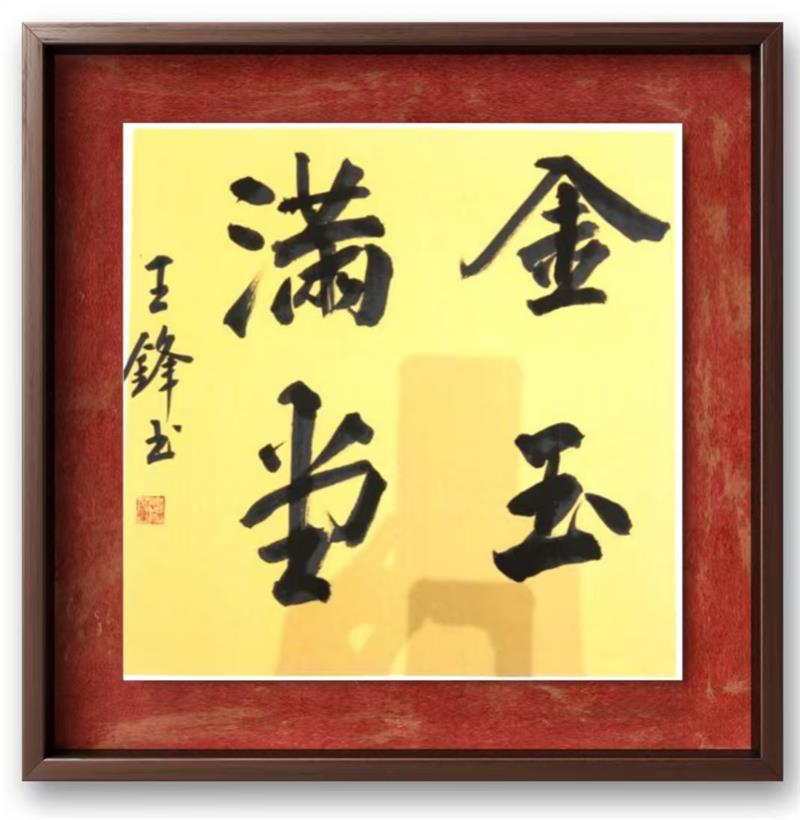 金玉
满堂
王鋒书